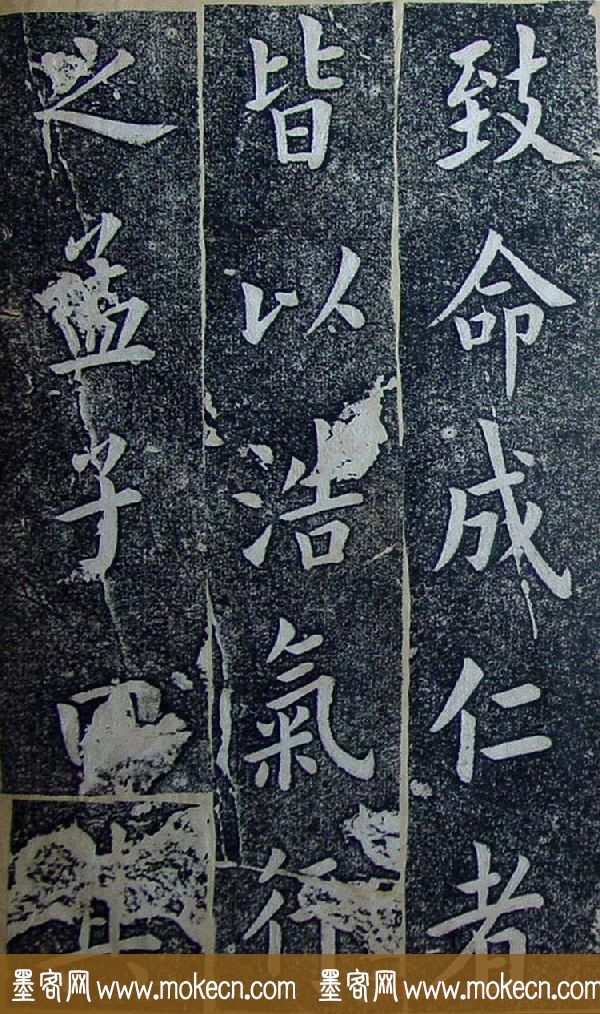 致命成仁者
皆以浩氣行
之孟子曰其
墨客网 www.mokecn.com 墨客网 www.mokecn.com